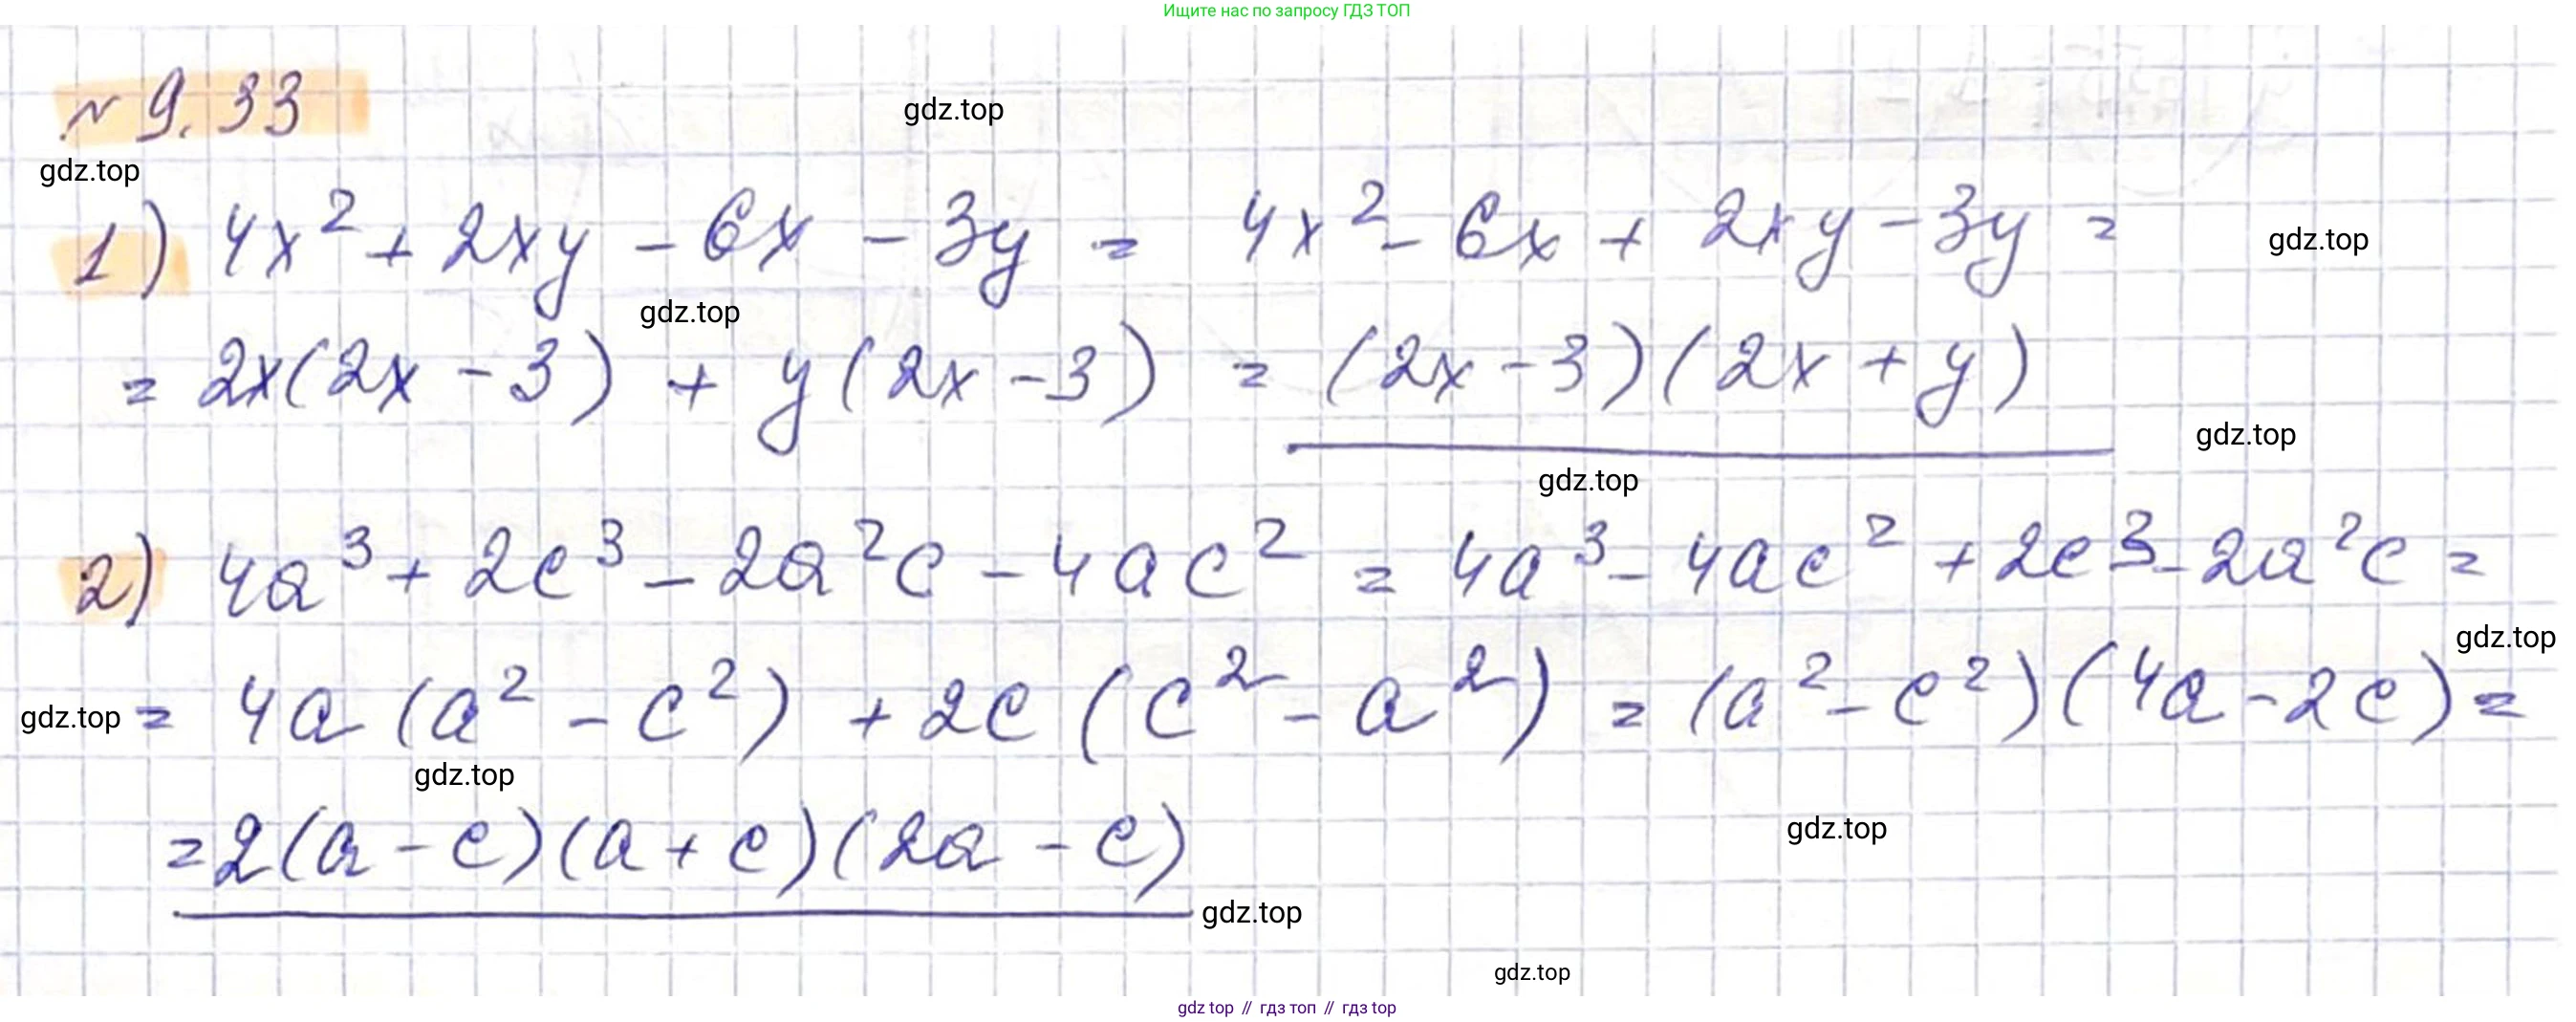 Ищите нас по запросу ГДЗ ТОП
№ 9.33
gdz.top
gdz.top
1) 4x² + 2xy - 6x - 3y = 4x² - 6x + 2xy - 3y =
gdz.top
gdz.top
= 2x(2x - 3) + y(2x - 3) = (2x - 3)(2x + y)
gdz.top
gdz.top
2) 4a³ + 2c³ - 2a²c - 4ac² = 4a³ - 4ac² + 2c³ - 2a²c =
gdz.top
gdz.top
= 4a(a² - c²) + 2c(c² - a²) = (a² - c²)(4a - 2c) =
gdz.top
gdz.top
= 2(a - c)(a + c)(2a - c)
gdz.top
gdz.top
gdz top // гдз топ // гдз top